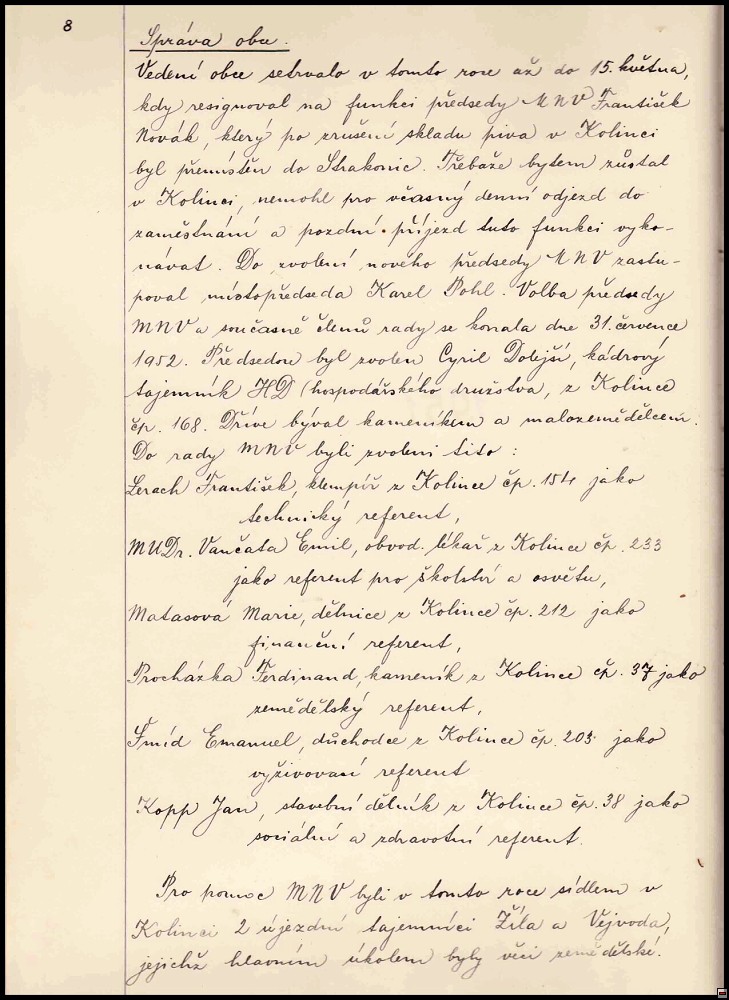 8
Správa obce.
Vedení obce setrvalo v tomto roce až do 15. května,
kdy resignoval na funkci předsedy MNV František
Novák, který po zrušení skladu piva v Kolinci
byl přemístěn do Strakonic. Třebaže bytem zůstal
v Kolinci, nemohl pro včasný denní odjezd do
zaměstnání a pozdní příjezd tuto funkci vyko-
návat. Do zvolení nového předsedy MNV zastu-
poval místopředseda Karel Pohl. Volba předsedy
MNV a současně členů rady se konala dne 31. července
1952. Předsedou byl zvolen Cyril Dolejší, kádrový
tajemník HD (hospodářského družstva, z Kolince
čp. 168. Dříve býval kameníkem a malozemědělcem.
Do rady MNV byli zvoleni tito :
Lerach František, klempíř z Kolince čp. 154 jako
technický referent,
MUDr. Vančata Emil, obvod. lékař z Kolince čp. 233
jako referent pro školství a osvětu,
Matasová Marie, dělnice z Kolince čp. 212 jako
finanční referent,
Procházka Ferdinand, kameník z Kolince čp. 37 jako
zemědělský referent,
Šmíd Emanuel, důchodce z Kolince čp. 203 jako
vyživovací referent
Kopp Jan, stavební dělník z Kolince čp. 38 jako
sociální a zdravotní referent.
Pro pomoc MNV byli v tomto roce sídlem v
Kolinci 2 újezdní tajemníci Žíla a Vejvoda,
jejichž hlavním úkolem byly věci zemědělské.